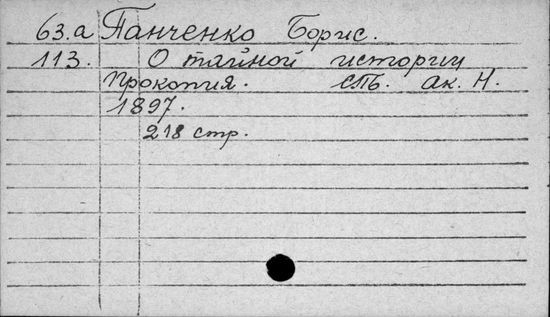 63.а Панченко Борис.
113. О тайной истории
Прокопия. СПБ. Ак. Н.
1897.
218 стр.